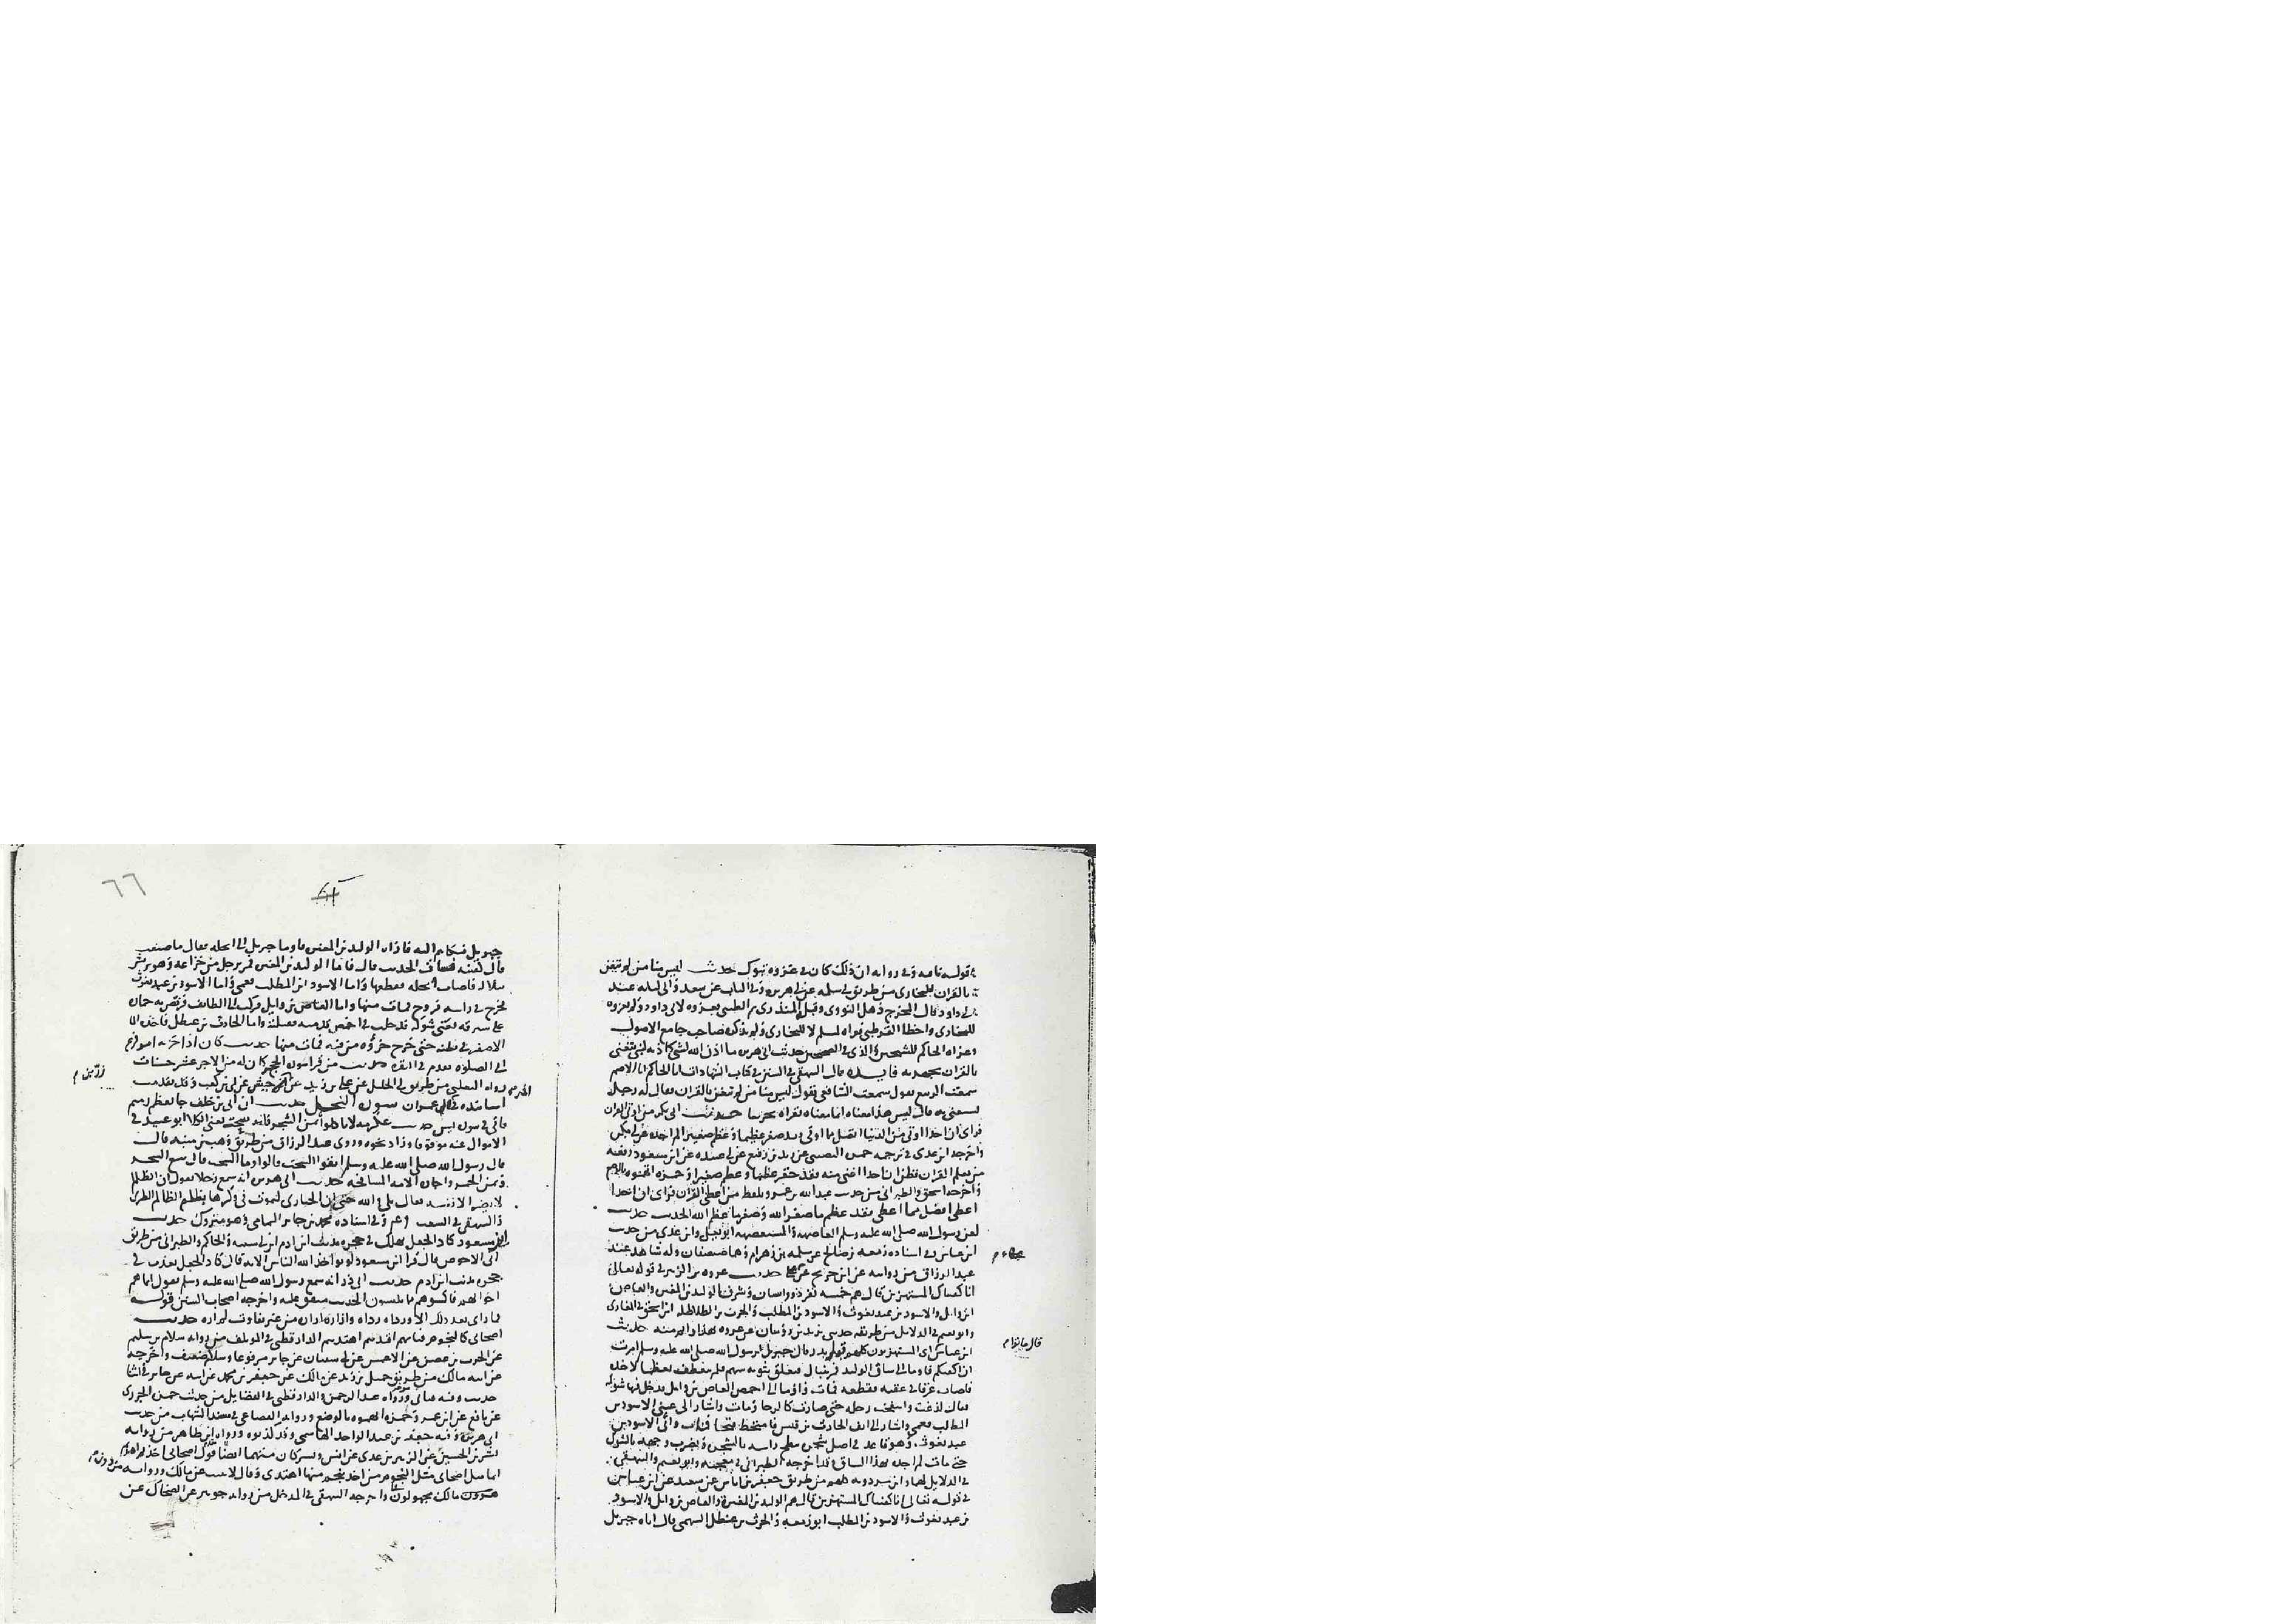 قوله تامه وفي رواية ان ذلك كان في غزوة تبوك حديث ليس منا من لم يتغن
بالقران للبخاري من طريق ابي سلمه عن ابي هريره وفي الباب عن سعد وابي لبابه عند
ابي داود قال المخرج ذهل النووي وقبله المنذري ثم الطيبي بعزوه لابي داود ولم يعزوه
للبخاري واخطا القرطبي فعزاه لمسلم لا للبخاري ولم يذكره صاحب جامع الاصول
وعزاه الحاكم للشيخين والذي في الصحيحين حديث ابي هريره ما اذن الله لشي كاذنه لنبي يتغنى
بالقران يجهر به فايده قال البيهقي في السنن في كتاب الشهادات انا الحاكم انا الاصم
سمعت الربيع يقول سمعت الشافعي يقول ليس منا من لم يتغن بالقران فقال له رجل
يستغني به قال ليس هذا معناه انما معناه يقراه تحزينا حديث ابي بكر من اوتي القران
فراى ان احدا اوتي من الدنيا افضل مما اوتي فقد صغر عظيما وعظم صغيرا لم اجده عن ابي بكر
واخرجه ابن عدي في ترجمه حمزه النصيبي عن زيد بن رفيع عن ابي عبيده عن ابن مسعود رفعه
من تعلم القران فظن ان احدا اغنى منه فقد حقر عظيما وعظم صغيرا وحمزه اتهموه بالوضع
واخرجه اسحق والطبراني من حديث عبد الله بن عمرو بلفظ من اعطي القران فراى ان احدا
اعطي افضل مما اعطي فقد عظم ما صغر الله وصغر ما عظم الله الحديث حديث
لعن رسول الله صلى الله عليه وسلم العاضهه والمستعضهه ابو يعلى وابن عدي من حديث
ابن عباس وفي اسناده زمعه بن صالح عن سلمه بن وهرام وهما ضعيفان وله شاهد عند
عبد الرزاق من روايته عن ابن جريج عن عطاء حديث عروه بن الزبير في قوله تعالى
انا كفيناك المستهزئين قال هم خمسه نفر ذووا اسنان وشرف الوليد بن المغيره والعاص
ابن وايل والاسود بن عبد يغوث والاسود بن المطلب والحرث بن الطلاطله ابن اسحق في المغازي
وابو نعيم في الدلايل من طريقه حدثني يزيد بن رومان عن عروه بهذا واتم منه حديث
ابن عباس اي المستهزئون كلهم قبل بدر قال جبريل لرسول الله صلى الله عليه وسلم امرت
ان اكفيكهم فاوما الى ساق الوليد فمر بنبال فتعلق بثوبه سهم فلم ينعطف تعظما لاخذه
فاصاب عرقا في عقبه فقطعه فمات واوما الى اخمص العاص بن وايل فدخل فيها شوكه
فقال لدغت وانتفخت رجله حتى صارت كالرحا ومات واشار الى عيني الاسود بن
المطلب فعمي واشار الى انف الحارث بن قيس فامتخط قيحا فمات والى الاسود بن
عبد يغوث وهو قاعد في اصل شجره فجعل ينطح راسه بالشجره ويضرب وجهه بالشوك
حتى مات لم اجده بهذا السياق وقد اخرجه الطبراني في معجمه وابو نعيم والبيهقي
في الدلايل لهما وابن مردويه كلهم من طريق جعفر بن اياس عن سعيد عن ابن عباس
في قوله تعالى انا كفيناك المستهزئين قال هم الوليد بن المغيره والعاص بن وايل والاسود
بن عبد يغوث والاسود بن المطلب ابو زمعه والحرث بن عيطل السهمي قال اتاه جبريل
عطاء م
قال ماتوا م
٦٦
جبريل فشكاهم اليه فاراه الوليد بن المغيره فاوما جبريل الى ابجله فقال ما صنعت
قال كفيته فساق الحديث قال فاما الوليد بن المغيره فمر برجل من خزاعه وهو يريش
نبلا له فاصاب ابجله فقطعها واما الاسود ابن المطلب فعمي واما الاسود بن عبد يغوث
فخرج في راسه قروح فمات منها واما العاص بن وايل فركب الى الطائف فربض به حماره
على شبرقه يعني شوكه فدخلت في اخمص قدميه فقتلته واما الحارث بن عيطل فاخذه الماء
الاصفر في بطنه حتى خرج خرؤه من فيه فمات منها حديث كان اذا حزبه امر فزع
الى الصلاه تقدم في البقره حديث من قرا سورة الحجر كان له من الاجر عشر حسنات
رواه الثعلبي من طريق ابي الخليل عن علي بن زيد عن زر بن حبيش عن ابي بن كعب وقد تقدمت
اسانيده في ال عمران سورة النحل حديث ان ابي بن خلف جا بعظم رميم
ياتي في سورة يس حديث
الاموال عنه موقوفا وزاد نحوه وروى عبد الرزاق من طريق وهب بن منبه قال
قال رسول الله صلى الله عليه وسلم اتقوا السحت قالوا وما السحت قال بيع الشجر
وثمن الخمر واجاره الامه المسافحه حديث ابي هريره انه سمع رجلا يقول ان الظالم
لا يضر الا نفسه فقال بلى والله حتى ان الحبارى لتموت في وكرها بظلم الظالم الطبري
والبيهقي في الشعب وفي اسناده محمد بن جابر اليمامي وهو متروك حديث
ابن مسعود كاد الجعل يهلك في جحره بذنب ابن ادم ابن ابي شيبه والحاكم والطبراني من طريق
ابي الاحوص قال قرا ابن مسعود ولو يؤاخذ الله الناس الايه قال كاد الجعل يعذب في
جحره بذنب ابن ادم حديث ابي ذر انه سمع رسول الله صلى الله عليه وسلم يقول انما هم
اخوانكم فاكسوهم مما تلبسون الحديث متفق عليه واخرجه اصحاب السنن قوله
فما رئي بعد ذلك الا ورداه رداه وازاره ازاره من غير تفاوت لم اره حديث
اصحابي كالنجوم فبايهم اقتديتم اهتديتم الدارقطني في المؤتلف من روايه سلام بن سليم
عن الحرث بن غصين عن الاعمش عن ابي سفيان عن جابر مرفوعا وسلام ضعيف واخرجه
غرائب مالك من طريق جميل بن زيد عن مالك عن جعفر بن محمد عن ابيه عن جابر في اثنا
حديث وفيه
عن نافع عن ابن عمر وحمزه اتهموه بالوضع ورواه القضاعي في مسند الشهاب من حديث
ابي هريره وفيه جعفر بن عبد الواحد الهاشمي وقد كذبوه ورواه ابن طاهر من روايه
بشر بن الحسين عن الزبير بن عدي عن انس وبشر كان متهما ايضا
انما مثل اصحابي مثل النجوم من اخذ بنجم منها اهتدى وقال لا يثبت عن مالك ورواته من دون
مالك مجهولون واخرجه البيهقي في المدخل من روايه جويبر عن الضحاك عن
زر بن م